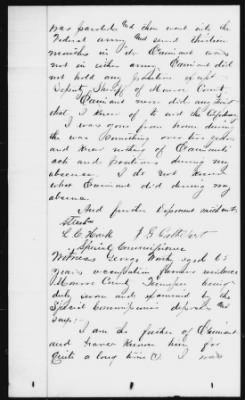 was paroled and then went into the
Federal army and served thirteen
months in it. Claimant was
not in either army. Claimant did
not hold any position except
Deputy Sheriff of Monroe County.
Claimant never did any
that I know of to aid the
I was gone from home during
the war
and know nothing of Claimants
acts and positions during my
absence. I do not know
what Claimant did during my
absence.
And further Deponent saith not.
Attest
L. C. Houk J. G.
Special Commissioner
Witness George aged 65
years occupation farmer residence
Monroe County Tennessee being
duly sworn and examined by the
Special Commissioner deposes and
says:
I am the father of Claimant
and have known him for
quite a long time. I was